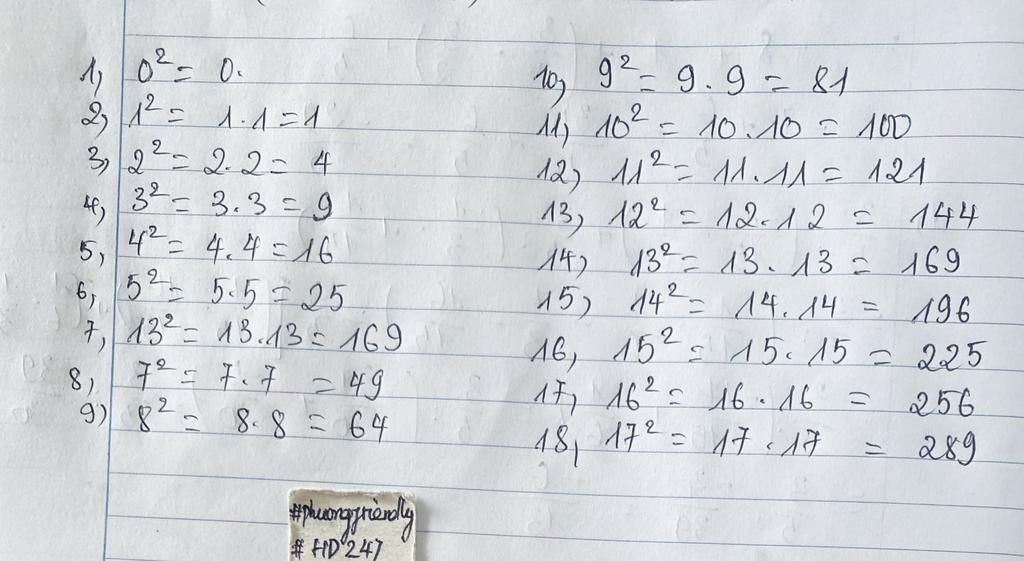 1, 0² = 0.
2, 1² = 1.1 = 1
3, 2² = 2.2 = 4
4, 3² = 3.3 = 9
5, 4² = 4.4 = 16
6, 5² = 5.5 = 25
7, 13² = 13.13 = 169
8, 7² = 7.7 = 49
9) 8² = 8.8 = 64
10, 9² = 9.9 = 81
11, 10² = 10.10 = 100
12, 11² = 11.11 = 121
13, 12² = 12.12 = 144
14, 13² = 13.13 = 169
15, 14² = 14.14 = 196
16, 15² = 15.15 = 225
17, 16² = 16.16 = 256
18, 17² = 17.17 = 289
#phuongfriendly
# HD 247